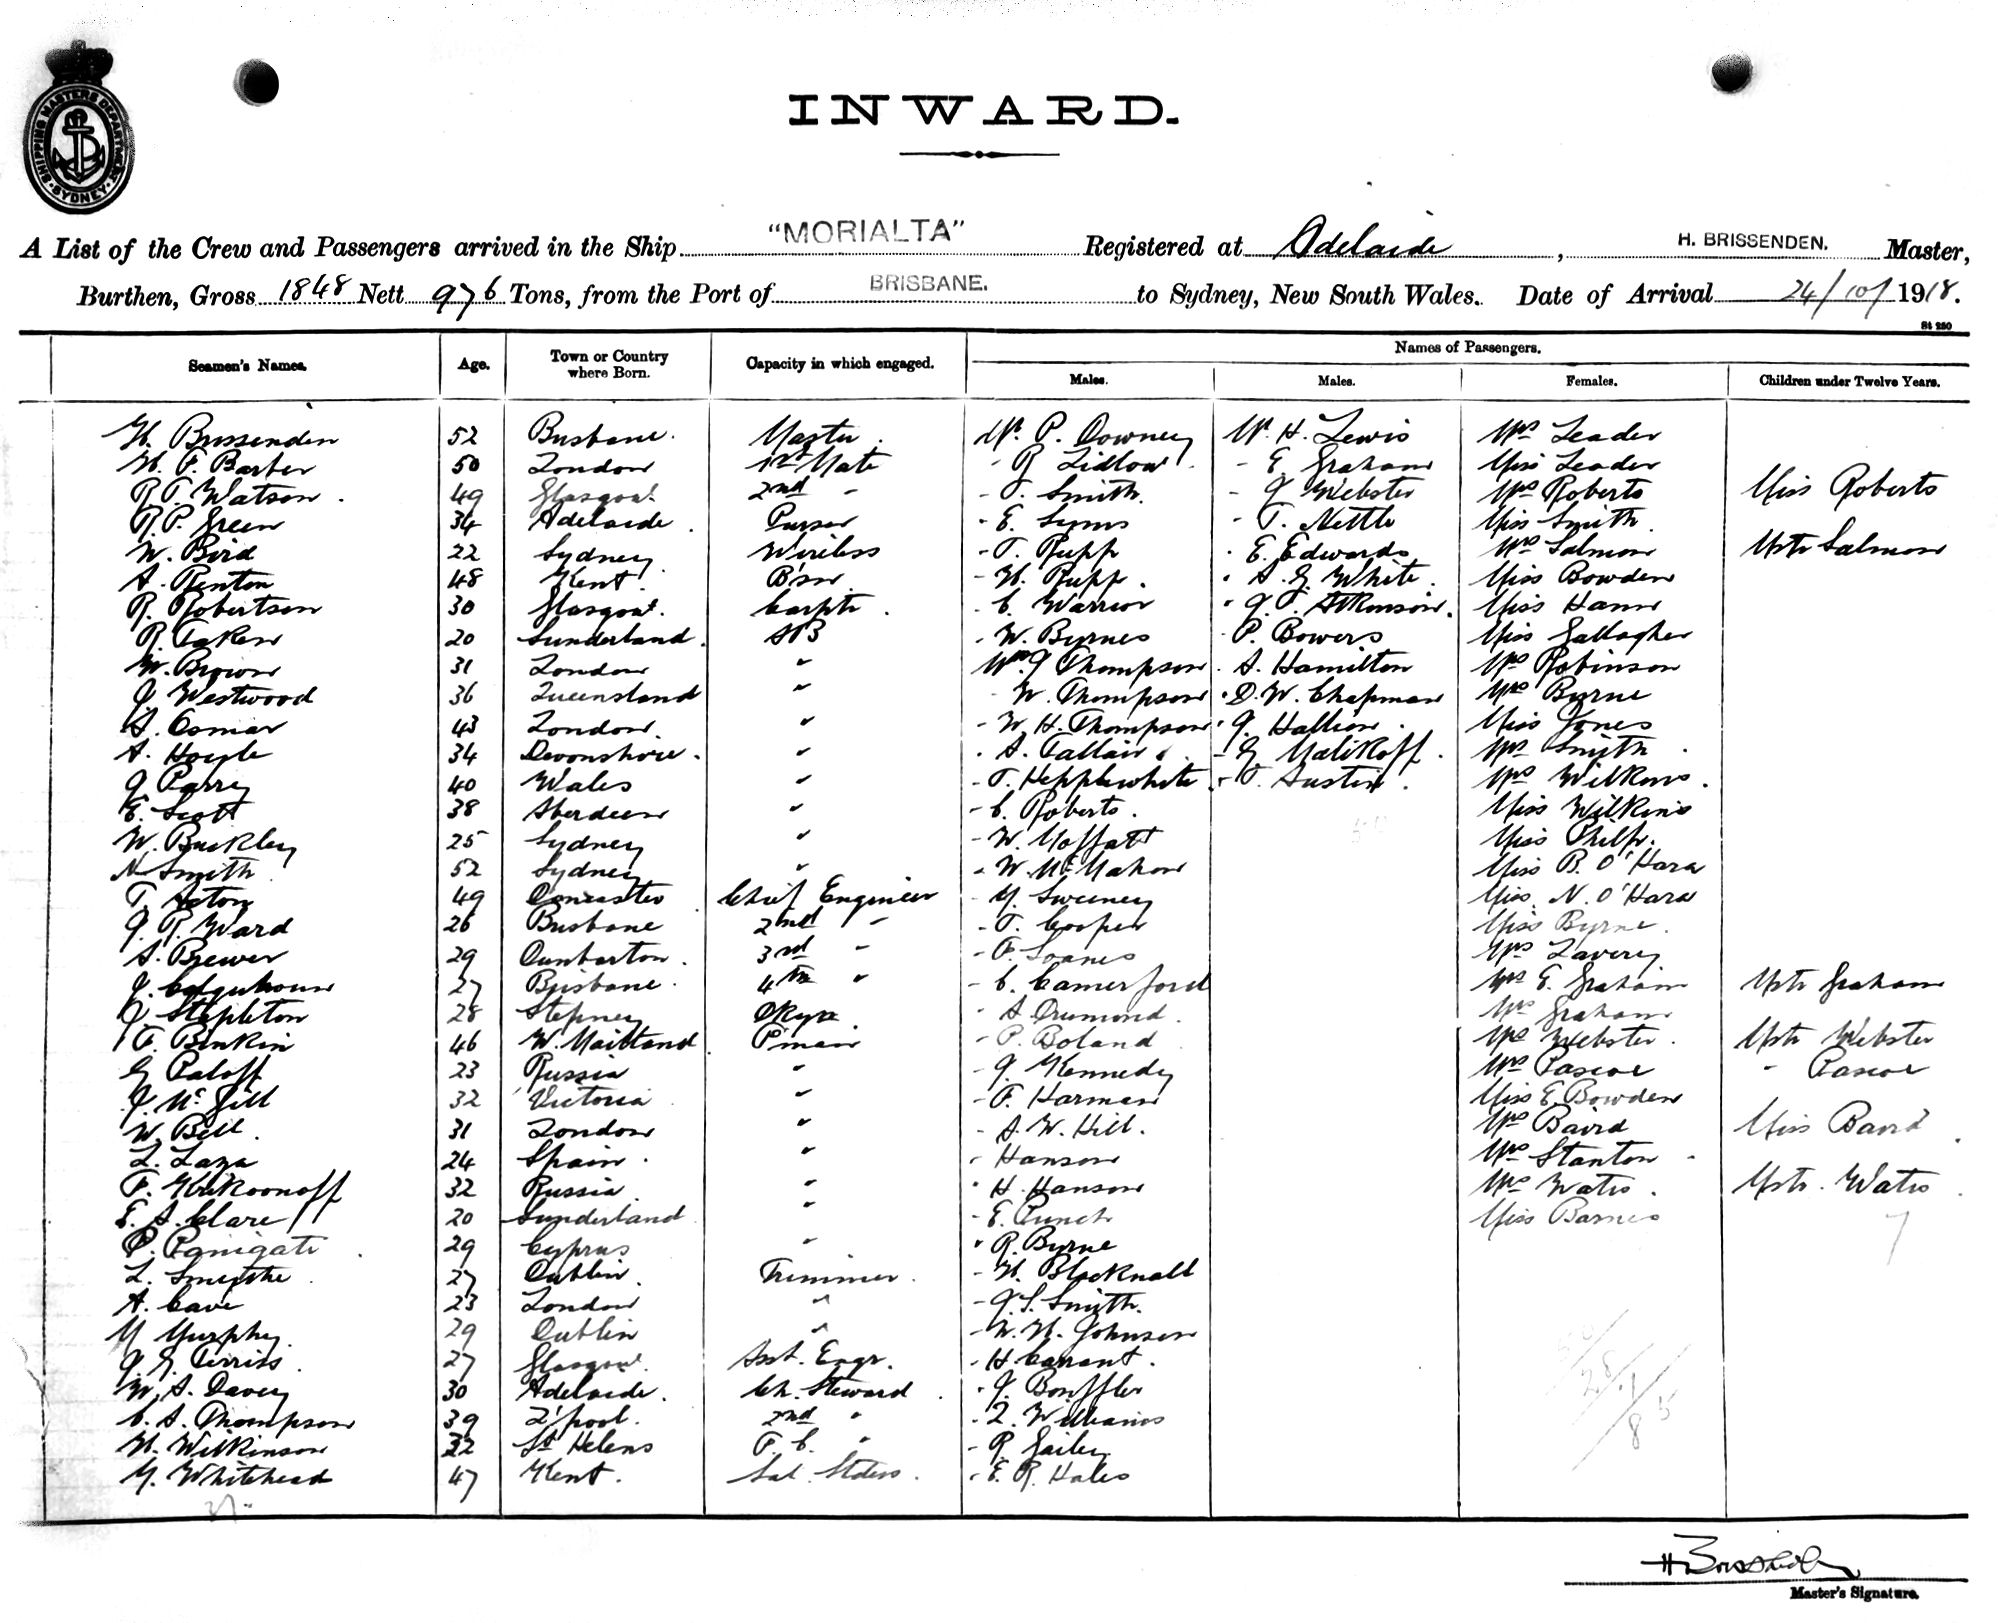 SHIPPING MASTERS DEPARTMENT · SYDNEY ·
INWARD.
A List of the Crew and Passengers arrived in the Ship "MORIALTA" Registered at Adelaide, H. BRISSENDEN. Master,
Burthen, Gross 1848 Nett 976 Tons, from the Port of BRISBANE. to Sydney, New South Wales. Date of Arrival 24/10/1918.
St 250
Seamen's Names. Age. Town or Country where Born. Capacity in which engaged. Names of Passengers.
Males. Males. Females. Children under Twelve Years.
H. Brissenden 52 Brisbane. Master. Mr. P. Downey Mr. H. Lewis Mrs Leader
H. F. Barber 50 London 1st Mate - R Lidlow. - E. Graham Miss Leader
R. T. Watson. 49 Glasgow. 2nd " - T. Smith. - J Webster Mrs Roberts Miss Roberts
R. P. Green 34 Adelaide. Purser - E. Syms - T. Nettle Miss Smith.
W. Bird 22 Sydney. Wireless - T. Rupp - E. Edwards Mrs Salmon Mstr Salmon
A. Renton 48 Kent. B'sn - H. Rupp. - A. G. White. Miss Bowden
R. Robertson 30 Glasgow. Carptr. - C. Warrior - J. T. Atkinson. Miss Hann
R. Taken 20 Sunderland. AB - W. Byrnes - P. Bowers Miss Gallagher
W. Brown 31 London " Mr. J Thompson - A. Hamilton Mrs Robinson
J. Westwood 36 Queensland " - W. Thompson - D. W. Chapman Mrs Byrne
A. Osmar 43 London. " - W. H. Thompson - J. Hallion. Miss Jones
A. Hoyle 34 Devonshire. " - A. Tallair. - G Malikoff. Mrs Smyth.
J Parry 40 Wales " - T. Hepplewhite. - T. Austin. Mrs Wilkins.
E. Scott 38 Aberdeen " - C. Roberts. Miss Wilkins
W. Buckley 25 Sydney " - W. Moffatt Miss Philp.
N Smith. 52 Sydney " - W. McMahon Miss B. O'Hara
T. Acton 49 Doncaster Chief Engineer - M. Sweeney Miss. N. O'Hara
J. R. Ward 26 Brisbane 2nd " - T. Cooper Miss Byrne.
A. Brewer 29 Dunbarton. 3rd " - F. Soanes Mrs Lavery
J. Colquhoun 27 Brisbane. 4th " - C. Camerford Mrs E. Graham Mstr Graham
J Stapleton 28 Stepney Dkyn. - A Drumond. Mrs Graham
F. Binkin 46 W. Maitland. F'man - P. Boland Mrs Webster. Mstr Webster
G Paloff 23 Russia " - J. Kennedy Mrs Pascoe - Pascoe
J. McGill 32 Victoria " - F. Harman Miss E. Bowden
W. Bell. 31 London " - A. W. Hill. Mrs Baird Miss Baird.
L. Laza 24 Spain. " - Hanson Mrs Stanton.
F. Krikoonoff 32 Russia. " - H. Hanson Mrs Watts. Mstr. Watts.
E. A. Clare 20 Sunderland " - E. Punch Miss Barnes 7
P. Panigati. 29 Cyprus " - R. Byrne
L. Smythe. 27 Dublin. Trimmer. - H. Blacknall
A. Cave 23 London " - J. S. Smyth.
M Murphy. 29 Dublin " - W. H. Johnson
J G Ferriss. 27 Glasgow. Asst. Engr. - H Carrant.
W. A. Davey 30 Adelaide. Ch. Steward. - J. Bouffler
C. A. Thompson 39 L'pool. 2nd " - L. Williams
H. Wilkinson 32 St Helens F. C. " - R Gailey
M. Whitehead 47 Kent. Sal. Stdess. - E. R. Hales
37
28
8
H Brissenden
Master's Signature.